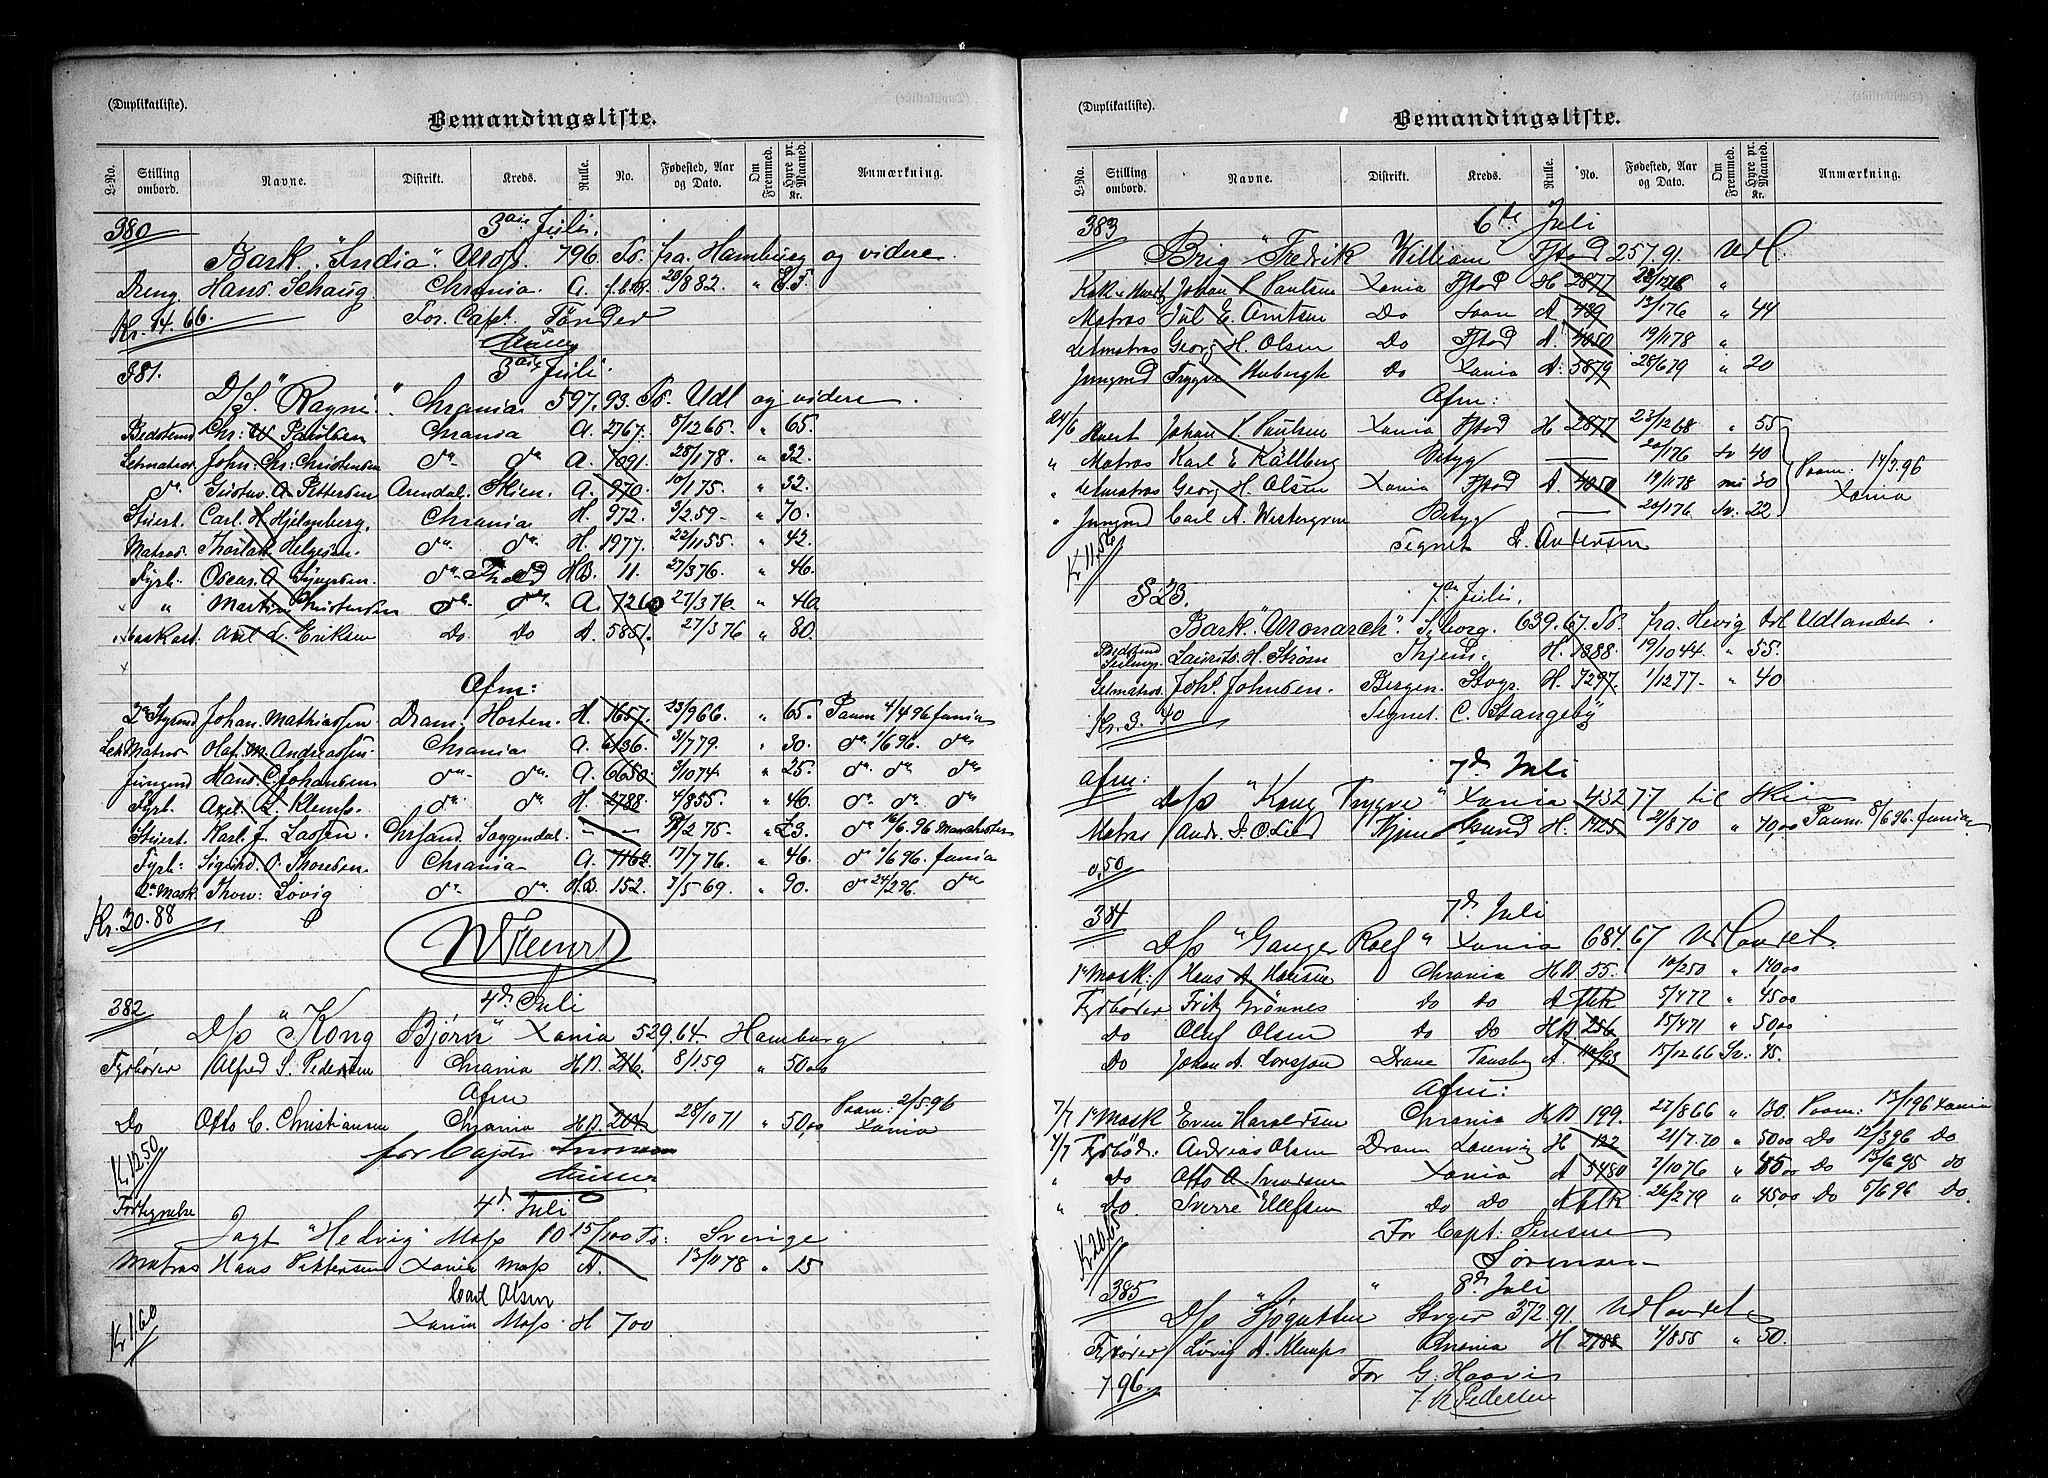 (Duplikatliste).
Bemandingsliste.
L-No. Stilling ombord. Navne. Distrikt. Kreds. Rulle. No. Fødested, Aar og Dato. Om Fremmed. Hyre pr. Maaned. Kr. Anmærkning.
380 3die Juli.
Bark. "India". Moss. 796 To. fra Hamburg og videre.
Dreng Hans Schaug Chrania. A. 28/882. "
Kr. 14.66. For Capt. Tønder
Müller
381. 3die Juli.
D/S. "Ragni". Chrania 597.93. To. Udl og videre.
Bedstemd Chr: W Paulsen Chrania A. 2767. 5/1265. " 65.
Letmatros John: Chr: Christensen do do A. 7091. 28/178. " 32.
do Gustav. A Pettersen Arendal. Skien. A. 970. 10/175. " 32.
Stuert. Carl. H Hjelmberg. Chrania H. 972. 9/259. " 70.
Matros Thorlak Helgesen. do do H. 1977. 22/1155. " 42.
Fyrb. Oscar. A do HB. 11. 27/376. " 46.
" Martin Christensen do do A. 7260 27/376. " 40.
Axel L. Eriksen Do Do A. 5851. 27/376 " 80.
Afm:
2n Styrmd Johan. Mathiassen Dram. Horten. H. 1657. 23/966. " 65. Paam 4/496 Xania
Let Matros Olaf. M. Andreassen. Chrania A. 6136. 3/779. " 30. do 1/696. do
Jungmd Hans. C. Johansen do do A. 6650. 3/1074. " 25. do do do
Fyrb. Axel. L. Klemp. do do H. 2788. 4/855. " 46. do do do
Stuert. Karl. J. Lassen. Chrsand Soggendal. — — /2 75. " 23. do 16/6.96 Manchester
Fyrb: Sigurd. O. Thoresen. Chrania A. 7162 17/776. " 46. do 1/696. Xania
2n Mask. Thorv: Løvig do do H.B. 152. 3/569. " 90. do 24/296. do
Kr. 20.88
382 4de Juli
D/p "Kong Bjørn" Xania 529.64. Hamburg
Fyrbøder Alfred S. Pedersen Chrania H.B. 216. 8/159 " 50,00
Afm
Do Otto C. Christiansen Chrania H.B. 204 28/1071 " 50,00 Paam: 2/5.96 Xania
Kr 12.50 for Captn
Müller
Fortegnelse 4d Juli
Jagt "Hedvig" Moss 10 15/100 To: Sverige
Matros Hans Pettersen Xania Moss A. — 13/1178 " 15
Carl Olsen
Kr 1,60 Xania Moss H 700
(Duplikatliste).
Bemandingsliste.
L-No. Stilling ombord. Navne. Distrikt. Kreds. Rulle. No. Fødested, Aar og Dato. Om Fremmed. Hyre pr. Maaned. Kr. Anmærkning.
383 6te Juli
Brig "Fredrik William Fstad 257.91. Udl.
Kok & Stuert Johan P. Paulsen Xania Fstad H 2877 "
Matros Jul E. Arntsen Do Soon A 489 13/176 " 44
Letmatros Georg H. Olsen Do Fstad A. 4050 19/1178 "
Jungmd Trygve Stubergh Do Xania A. 5879 28/679 " 20
Afm:
24/6 Stuert Johan P. Paulsen Xania Fstad H 2877 23/1268 " 55
" Matros Karl E Källberg Betyg — 20/176 Sv 40
" Letmatros Georg H. Olsen Xania Fstad A. 4050 19/1178 30 Paam: 14/3.96 Xania
" Jungmd Carl A. Westergren Betyg — 20/176 Sv. 22
Kr 11.56 Tegnet L. Andersen
§ 23. 7de Juli.
Bark. "Monarch". S.borg. 639.67. To. fra Hevig til Udlandet.
Laurits. H. Strøm Thjem. H. 1388. 19/1044. " 55.
Letmatros. Johs. Johnsen. Bergen. Stvgr. H. 7297. 1/1277. " 40
Kr. 3.40 Tegnet. C. Stangeby
afm: 7d Juli
D/p "Kong Trygve" Xania 432 77 til Skien
Matros Andr. D. O. Lied H. 1425 21/870 " 70,00 Paam. 8/696. Xania
0,50
384 7d Juli
D/p "Gange Rolf" Xania 684.67 Udlandet
1n Mask. Hans A Hansen Chrania H.B 55. 10/250 " 140,00
Fyrbøder Fritz Grønnes Do Do A flk 5/472 " 45,00
Do Oluf Olsen Do Do H.B 256 15/471 " 50,00
Do Johan A. Corsjon Dram Tønsbg A. 15/1266 Sv. 45.
Afm:
7/7 1n Mask Even Haraldsen Chrania H.B 199. 27/866 " 130. Paam: 13/196 Xania
4/7 Fyrbød. Andreas Olsen Dram Laurvig H 122 21/7.70 " 50,00 Do 12/396 Do
" Do Otto A. Xania A 5480 7/1076 " 45,00 Do 15/6 95 Do
" Do. Sverre Ellefsen Do Do A flk 26/279 " 45,00 Do 5/696 Do.
Kr 20,65 For Capt. Jensen
Sørensen
385 8d Juli
D/p "Sjøgutten Stvger 372 91. Udlandet
Løvig A. Klemp Chrania H 2788 4/855 " 50.
7.96. For G. Haavi
Pedersen